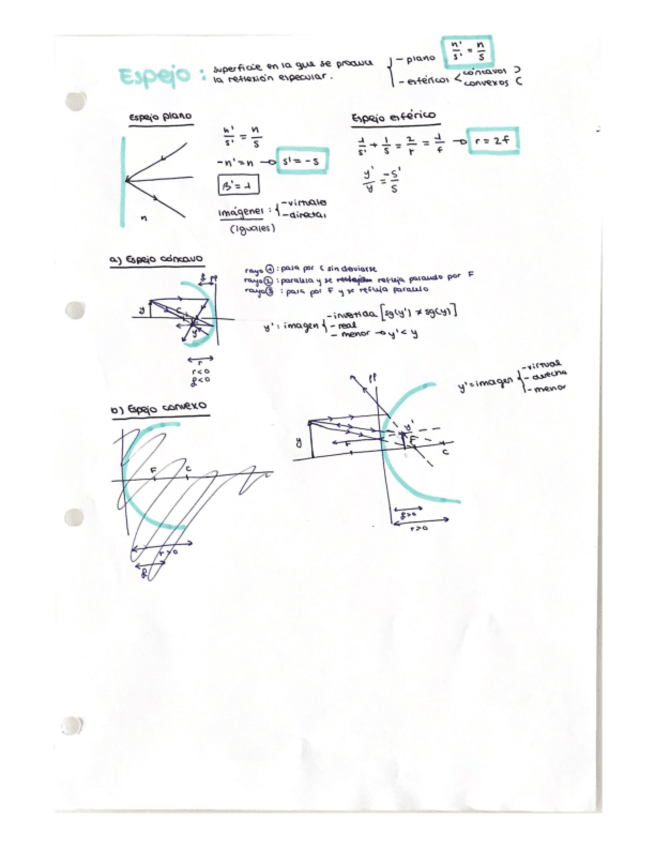 Espejo: superficie en la que se produce la reflexión especular.
- plano
- esféricos < cóncavos )
convexos (
n'/s' = n/s
Espejo plano
n'/s' = n/s
-n' = n → s' = -s
β' = 1
Imágenes: - virtuales
- directas
(iguales)
n
Espejo esférico
1/s' + 1/s = 2/r = 1/f → r = 2f
y'/y = -s'/s
a) Espejo cóncavo
rayo ①: pasa por C sin desviarse
rayo ②: paralela y se refleja pasando por F
rayo ③: pasa por F y se refleja paralelo
f pp
y
C
y'
r
r<0
f<0
y': imagen - invertida [sg(y') ≠ sg(y)]
- real
- menor → y' < y
b) Espejo convexo
F C
r>0
f
pp
y
F
y'
F
C
f>0
r>0
y' = imagen - virtual
- derecha
- menor